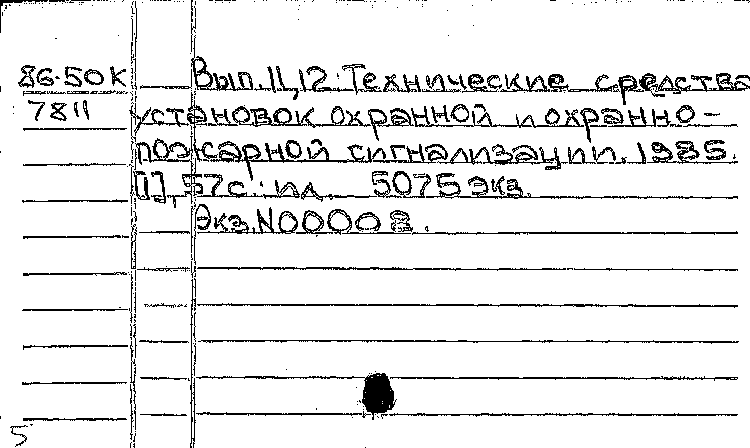 86-50К Вып. 11,12: Технические средства
7811 установок охранной и охранно-
пожарной сигнализации. 1985.
[1], 57 с.: ил. 5075 экз.
Экз. N00008.
5